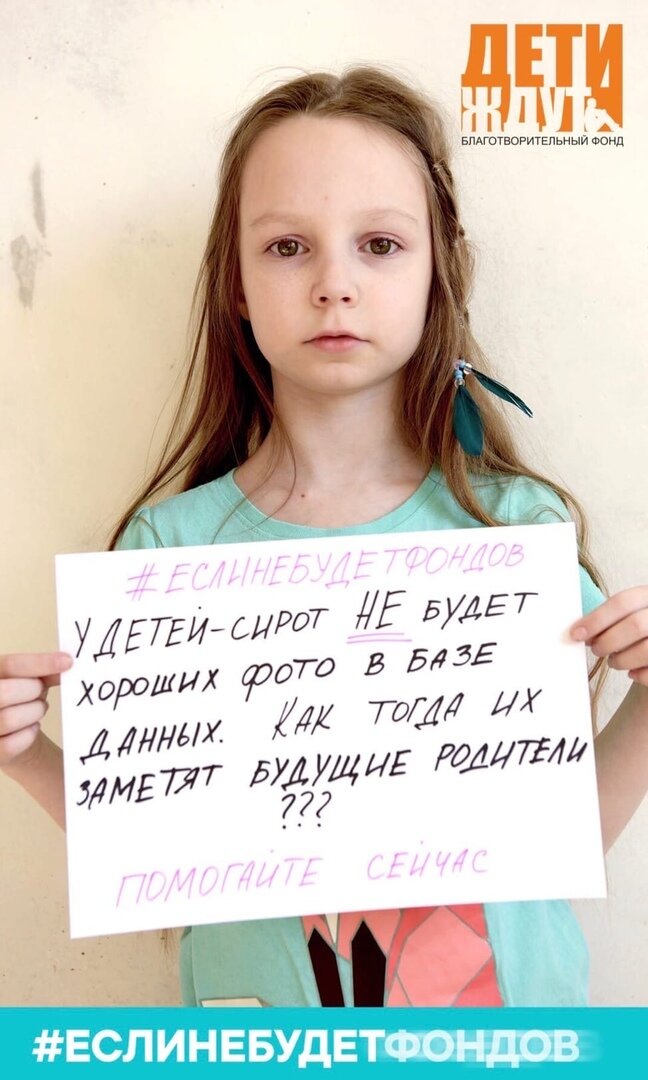 ДЕТИ
ЖДУТ
БЛАГОТВОРИТЕЛЬНЫЙ ФОНД
#ЕСЛИНЕБУДЕТФОНДОВ
У ДЕТЕЙ-СИРОТ НЕ БУДЕТ
ХОРОШИХ ФОТО В БАЗЕ
ДАННЫХ. КАК ТОГДА ИХ
ЗАМЕТЯТ БУДУЩИЕ РОДИТЕЛИ
???
ПОМОГАЙТЕ СЕЙЧАС
#ЕСЛИНЕБУДЕТФОНДОВ